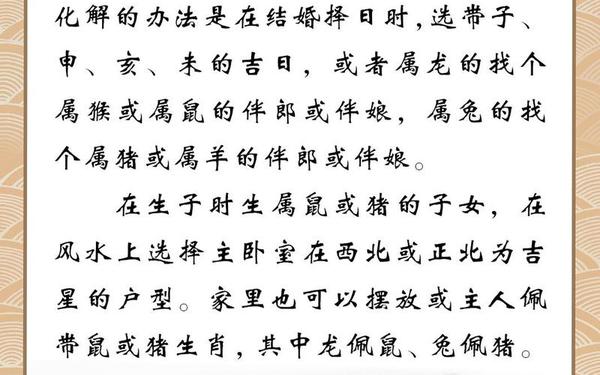 化解的办法是在结婚择日时,选带子、
申、亥、未的吉日，或者属龙的找个
属猴或属鼠的伴郎或伴娘，属兔的找
个属猪或属羊的伴郎或伴娘。
在生子时生属鼠或猪的子女，在
风水上选择主卧室在西北或正北为吉
星的户型。家里也可以摆放或主人佩
带鼠或猪生肖,其中龙佩鼠、兔佩猪。